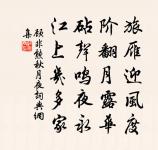 旅雁迎風度
階翻月露華
砧聲鳴夜永
江上幾多家
顧非熊秋月夜詞典網
集